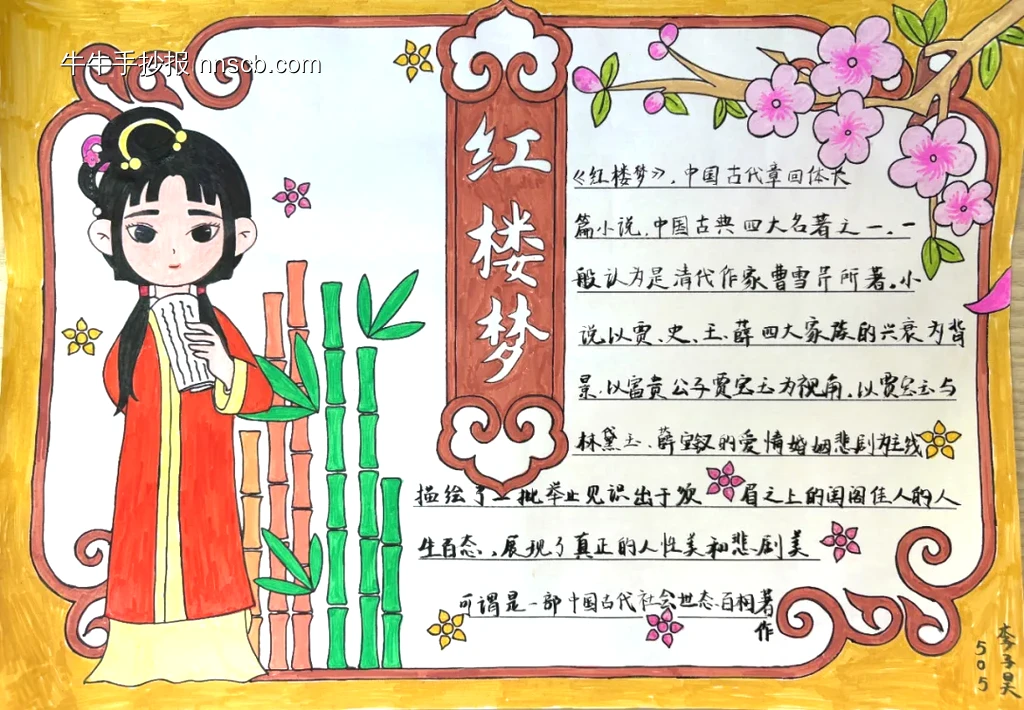 牛牛手抄报 nnscb.com
红楼梦
《红楼梦》，中国古代章回体长
篇小说，中国古典四大名著之一，一
般认为是清代作家曹雪芹所著。小
说以贾、史、王、薛四大家族的兴衰为背
景，以富贵公子贾宝玉为视角，以贾宝玉与
林黛玉、薛宝钗的爱情婚姻悲剧为主线
描绘了一批举止见识出于须眉之上的闺阁佳人的人
生百态，展现了真正的人性美和悲剧美
可谓是一部中国古代社会世态百相著
作
李子昊
505